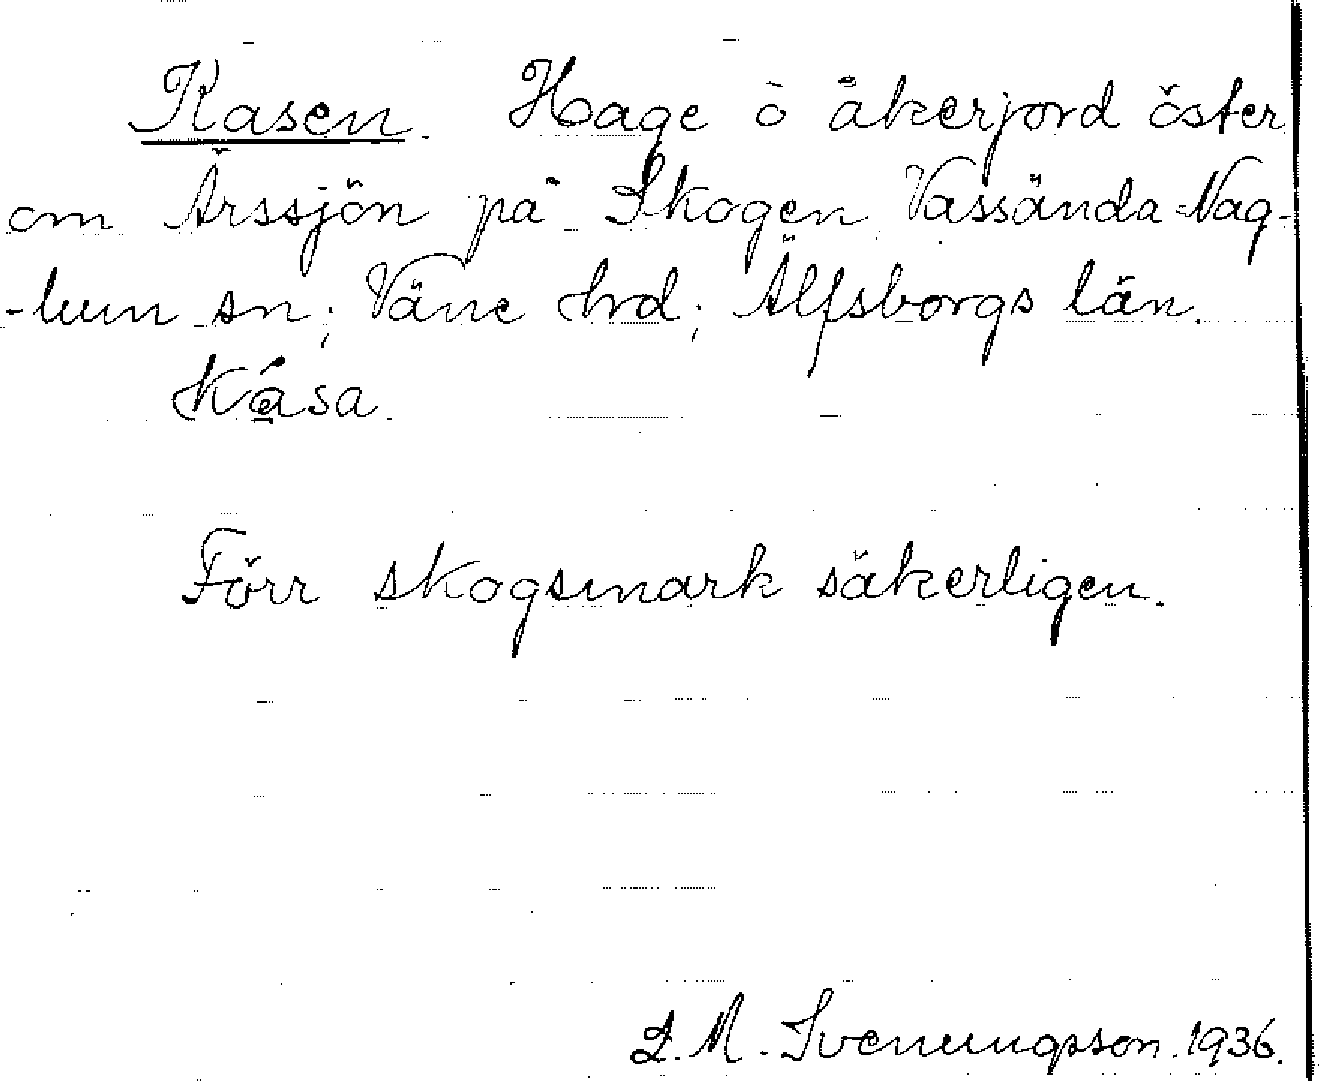 Kasen. Hage o åkerjord öster
om Årssjön på Skogen Vassända-Nag-
-lum sn; Väne hrd; Älfsborgs län.
Kása.
Förr skogsmark säkerligen.
L. M. Svenungsson. 1936.